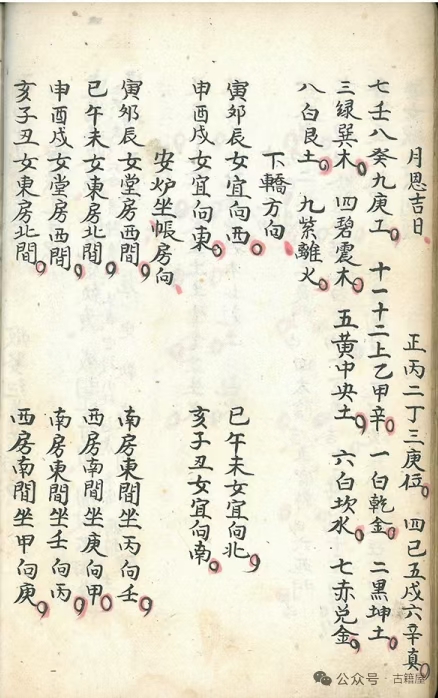 月恩吉日 正丙二丁三庚位 四己五戊六辛真
七壬八癸九庚工 十一十二上乙甲辛 一白乾金 二黑坤土
三緑巽木 四碧震木 五黃中央土 六白坎水 七赤兑金
八白艮土 九紫離火
下轎方向
寅夘辰女宜向西 巳午未女宜向北
申酉戌女宜向東 亥子丑女宜向南
安炉坐帳房向
寅夘辰女堂房西間 南房東間坐丙向壬
巳午未女東房北間 西房南間坐庚向甲
申酉戌女堂房西間 南房東間坐壬向丙
亥子丑女東房北間 西房南間坐甲向庚
公众号·古籍屋